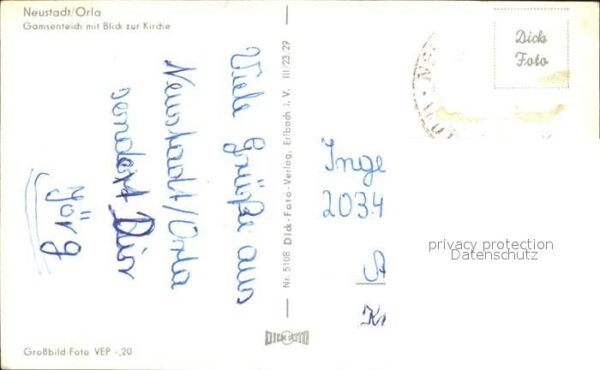 Neustadt/Orla
Gamsenteich mit Blick zur Kirche
Viele Grüße aus
Neustadt/Orla
sendet Dir
Jörg
Großbild-Foto VEP -,20
Nr. 5108 Dick-Foto-Verlag, Erlbach i. V. III/23/27
DICK FOTO
Dick
Foto
Inge
2034
privacy protection
Datenschutz